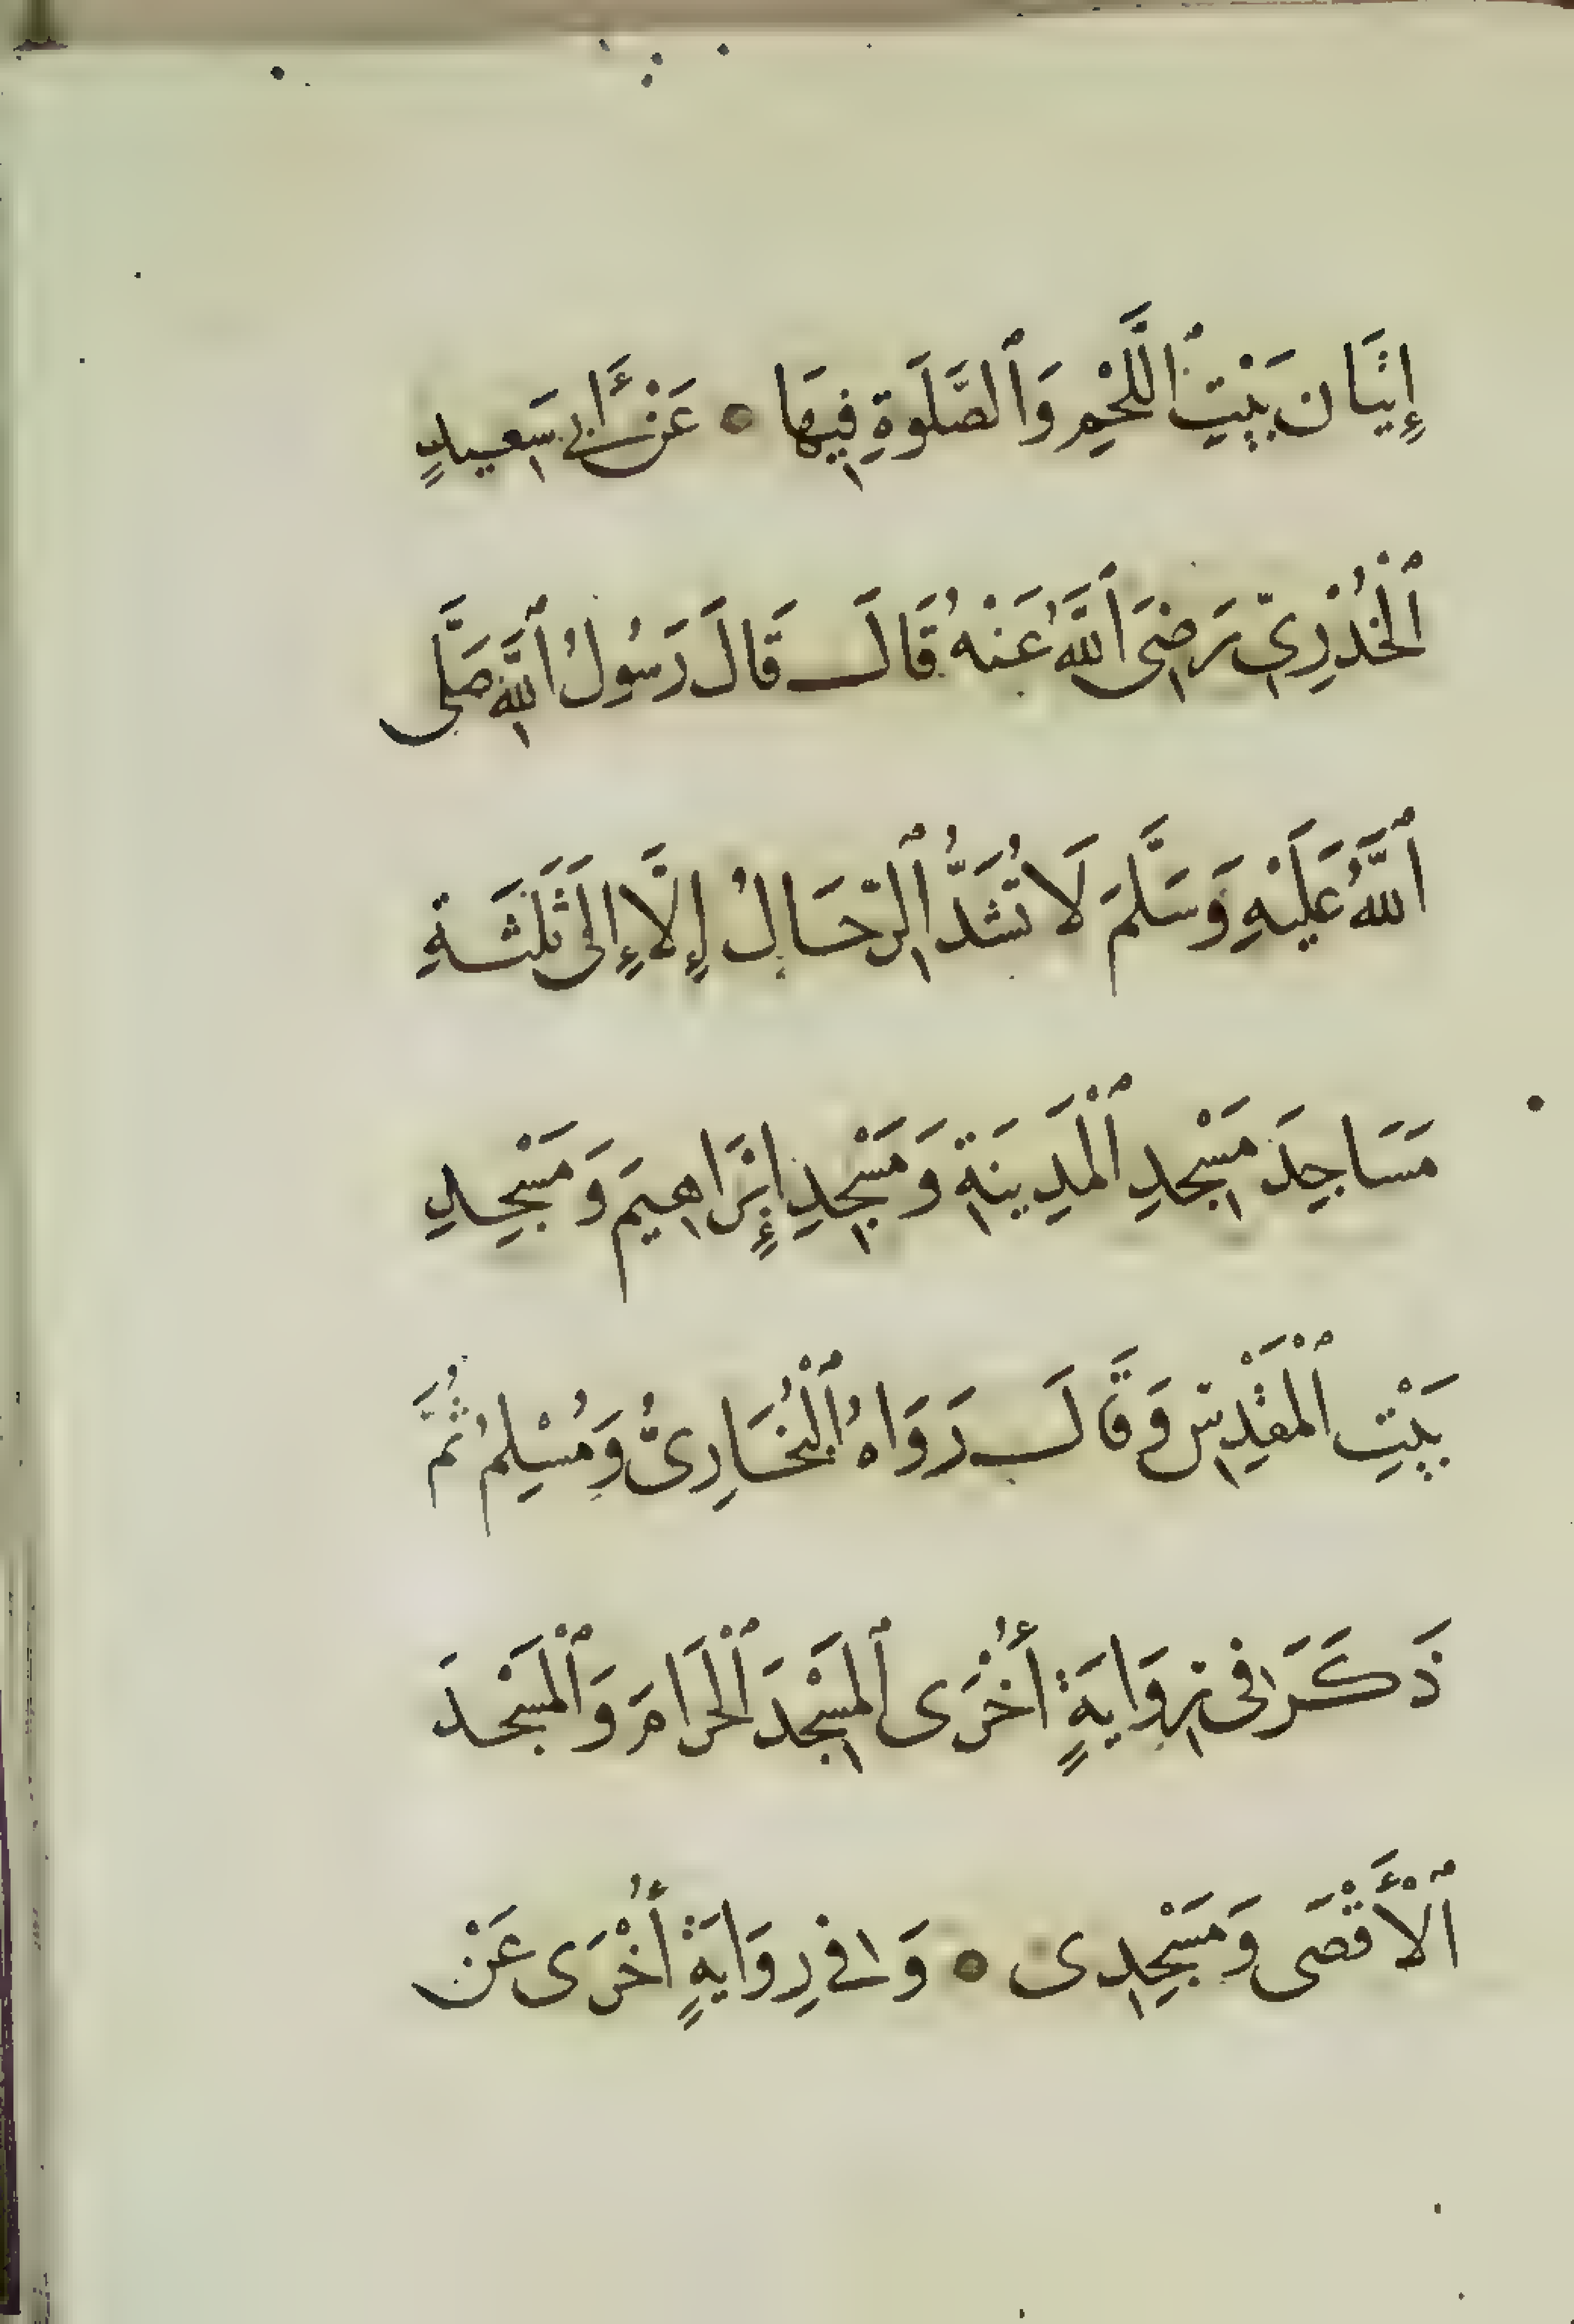 إِتْيَان بَيْتِ ٱللَّحْمِ وَٱلصَّلَوةِ فِيهَا ● عَنْ أَبِي سَعِيدٍ
ٱلْخُذْرِيِّ رَضِىَ ٱللَّهُ عَنْهُ قَالَ قَالَ رَسُولُ ٱللَّهِ صَلَّى
ٱللَّهُ عَلَيْهِ وَسَلَّمَ لَا تُشَدُّ ٱلرِّحَالُ إِلَّا إِلَى ثَلَثَةِ
مَسَاجِدَ مَسْجِدِ ٱلْمَدِينَةِ وَمَسْجِدِ إِبْرَاهِيمَ وَمَسْجِدِ
بَيْتِ ٱلْمَقْدِسِ وَقَالَ رَوَاهُ ٱلْبُخَارِىُّ وَمُسْلِمُ ثُمَّ
ذَكَرَ فِى رِوَايَةٍ أُخْرَى ٱلْمَسْجِدَ ٱلْحَرَامَ وَٱلْمَسْجِدَ
ٱلْأَقْصَى وَمَسْجِدِى ● وَفِى رِوَايَةٍ أُخْرَى عَنْ